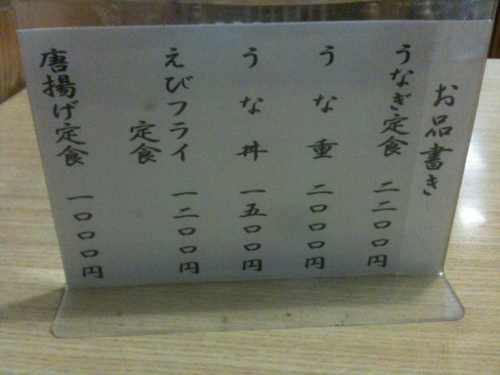 お品書き
うなぎ定食 二二〇〇円
うな重 二〇〇〇円
うな丼 一五〇〇円
えびフライ
定食 一二〇〇円
唐揚げ定食 一〇〇〇円